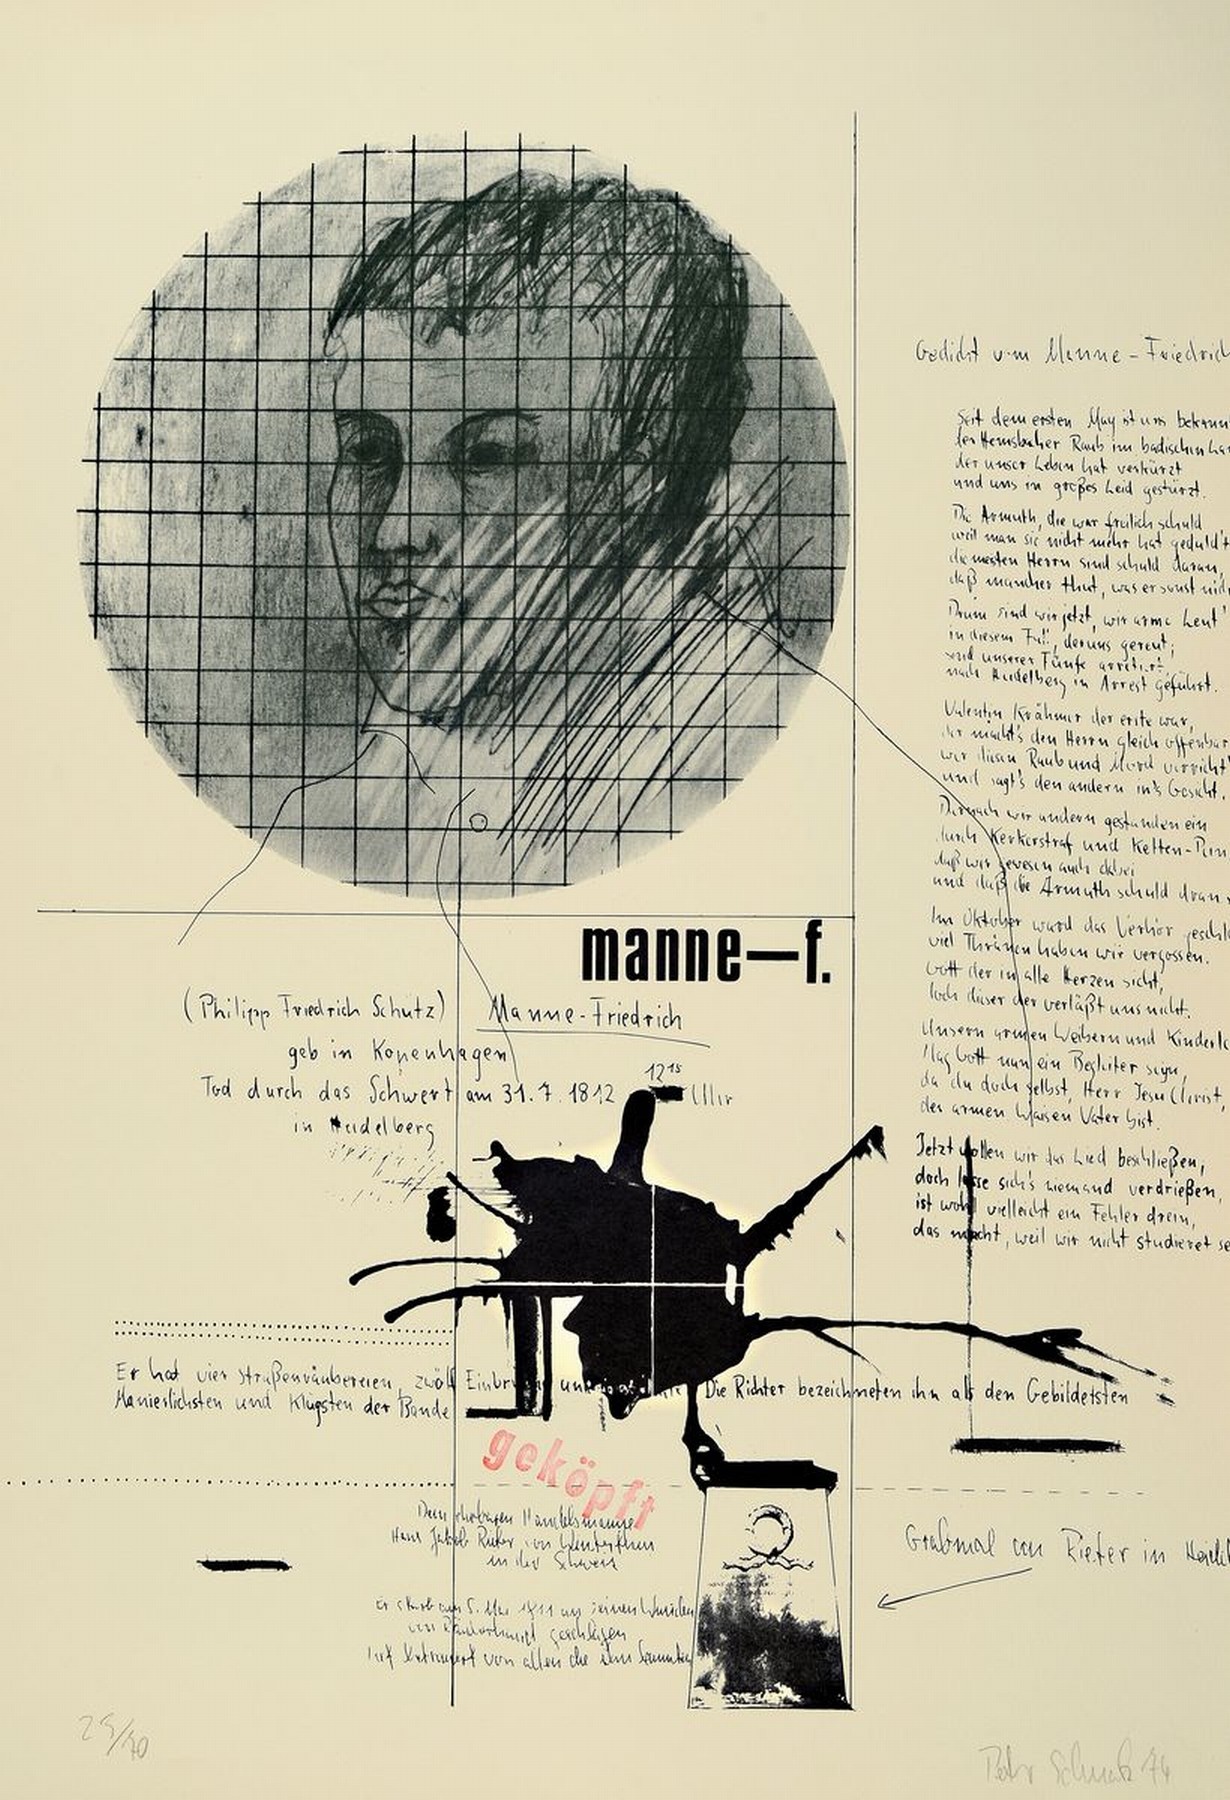 manne—f.
(Philipp Friedrich Schütz) Manne-Friedrich
geb in Kopenhagen
Tod durch das Schwert am 31.7.1812 12 15 Uhr
in Heidelberg
Gedicht vom Manne-Friedrich
Seit dem ersten May ist uns bekannt
der Hemsbacher Raub im badischen
der unser Leben hat verkürzt
und uns in großes Leid gestürzt.
Die Armuth, die war freilich schuld
weil man sie nicht mehr hat geduld't
die meisten Herrn sind schuld daran,
daß mancher thut, was er sonst
Drum sind wir jetzt, wir arme Leut'
in diesem Fall, der uns gereut;
sind unserer Fünfe arretirt
nach Heidelberg in Arrest geführt.
Valentin Krähmer der erste war,
der macht's den Herrn gleich offenbar
wer diesen Raub und Mord verricht'
und sagt's den andern in's Gesicht.
Darnach wir andern gestanden ein
durch Kerkerstraf und Ketten-Pein
daß wir gewesen auch dabei
und daß die Armuth schuld dran
Im Oktober ward das Verhör
viel Thränen haben wir vergossen.
Gott der in alle Herzen sicht,
doch dieser der verläßt uns nicht.
Unsern armen Weibern und
Mag Gott nun ein Begleiter seyn,
da du doch selbst, Herr Jesu Christ,
der armen Waisen Vater bist.
Jetzt wollen wir das Lied beschließen,
doch lasse sich's niemand verdrießen,
ist wohl vielleicht ein Fehler drein,
das macht, weil wir nicht studieret
Er hat vier Straßenräubereien, zwölf Die Richter bezeichneten ihn als den Gebildetsten
Manierlichsten und Klügsten der Bande
geköpft
Dem Handelsmanne
Hans Jakob Rieter von Winterthur
in der Schweiz
Er starb am 5. Mai 1811 an seinen Wunden
von Räuberhand geschlagen
von allen die ihn
Grabmal von Rieter in
25/70
74